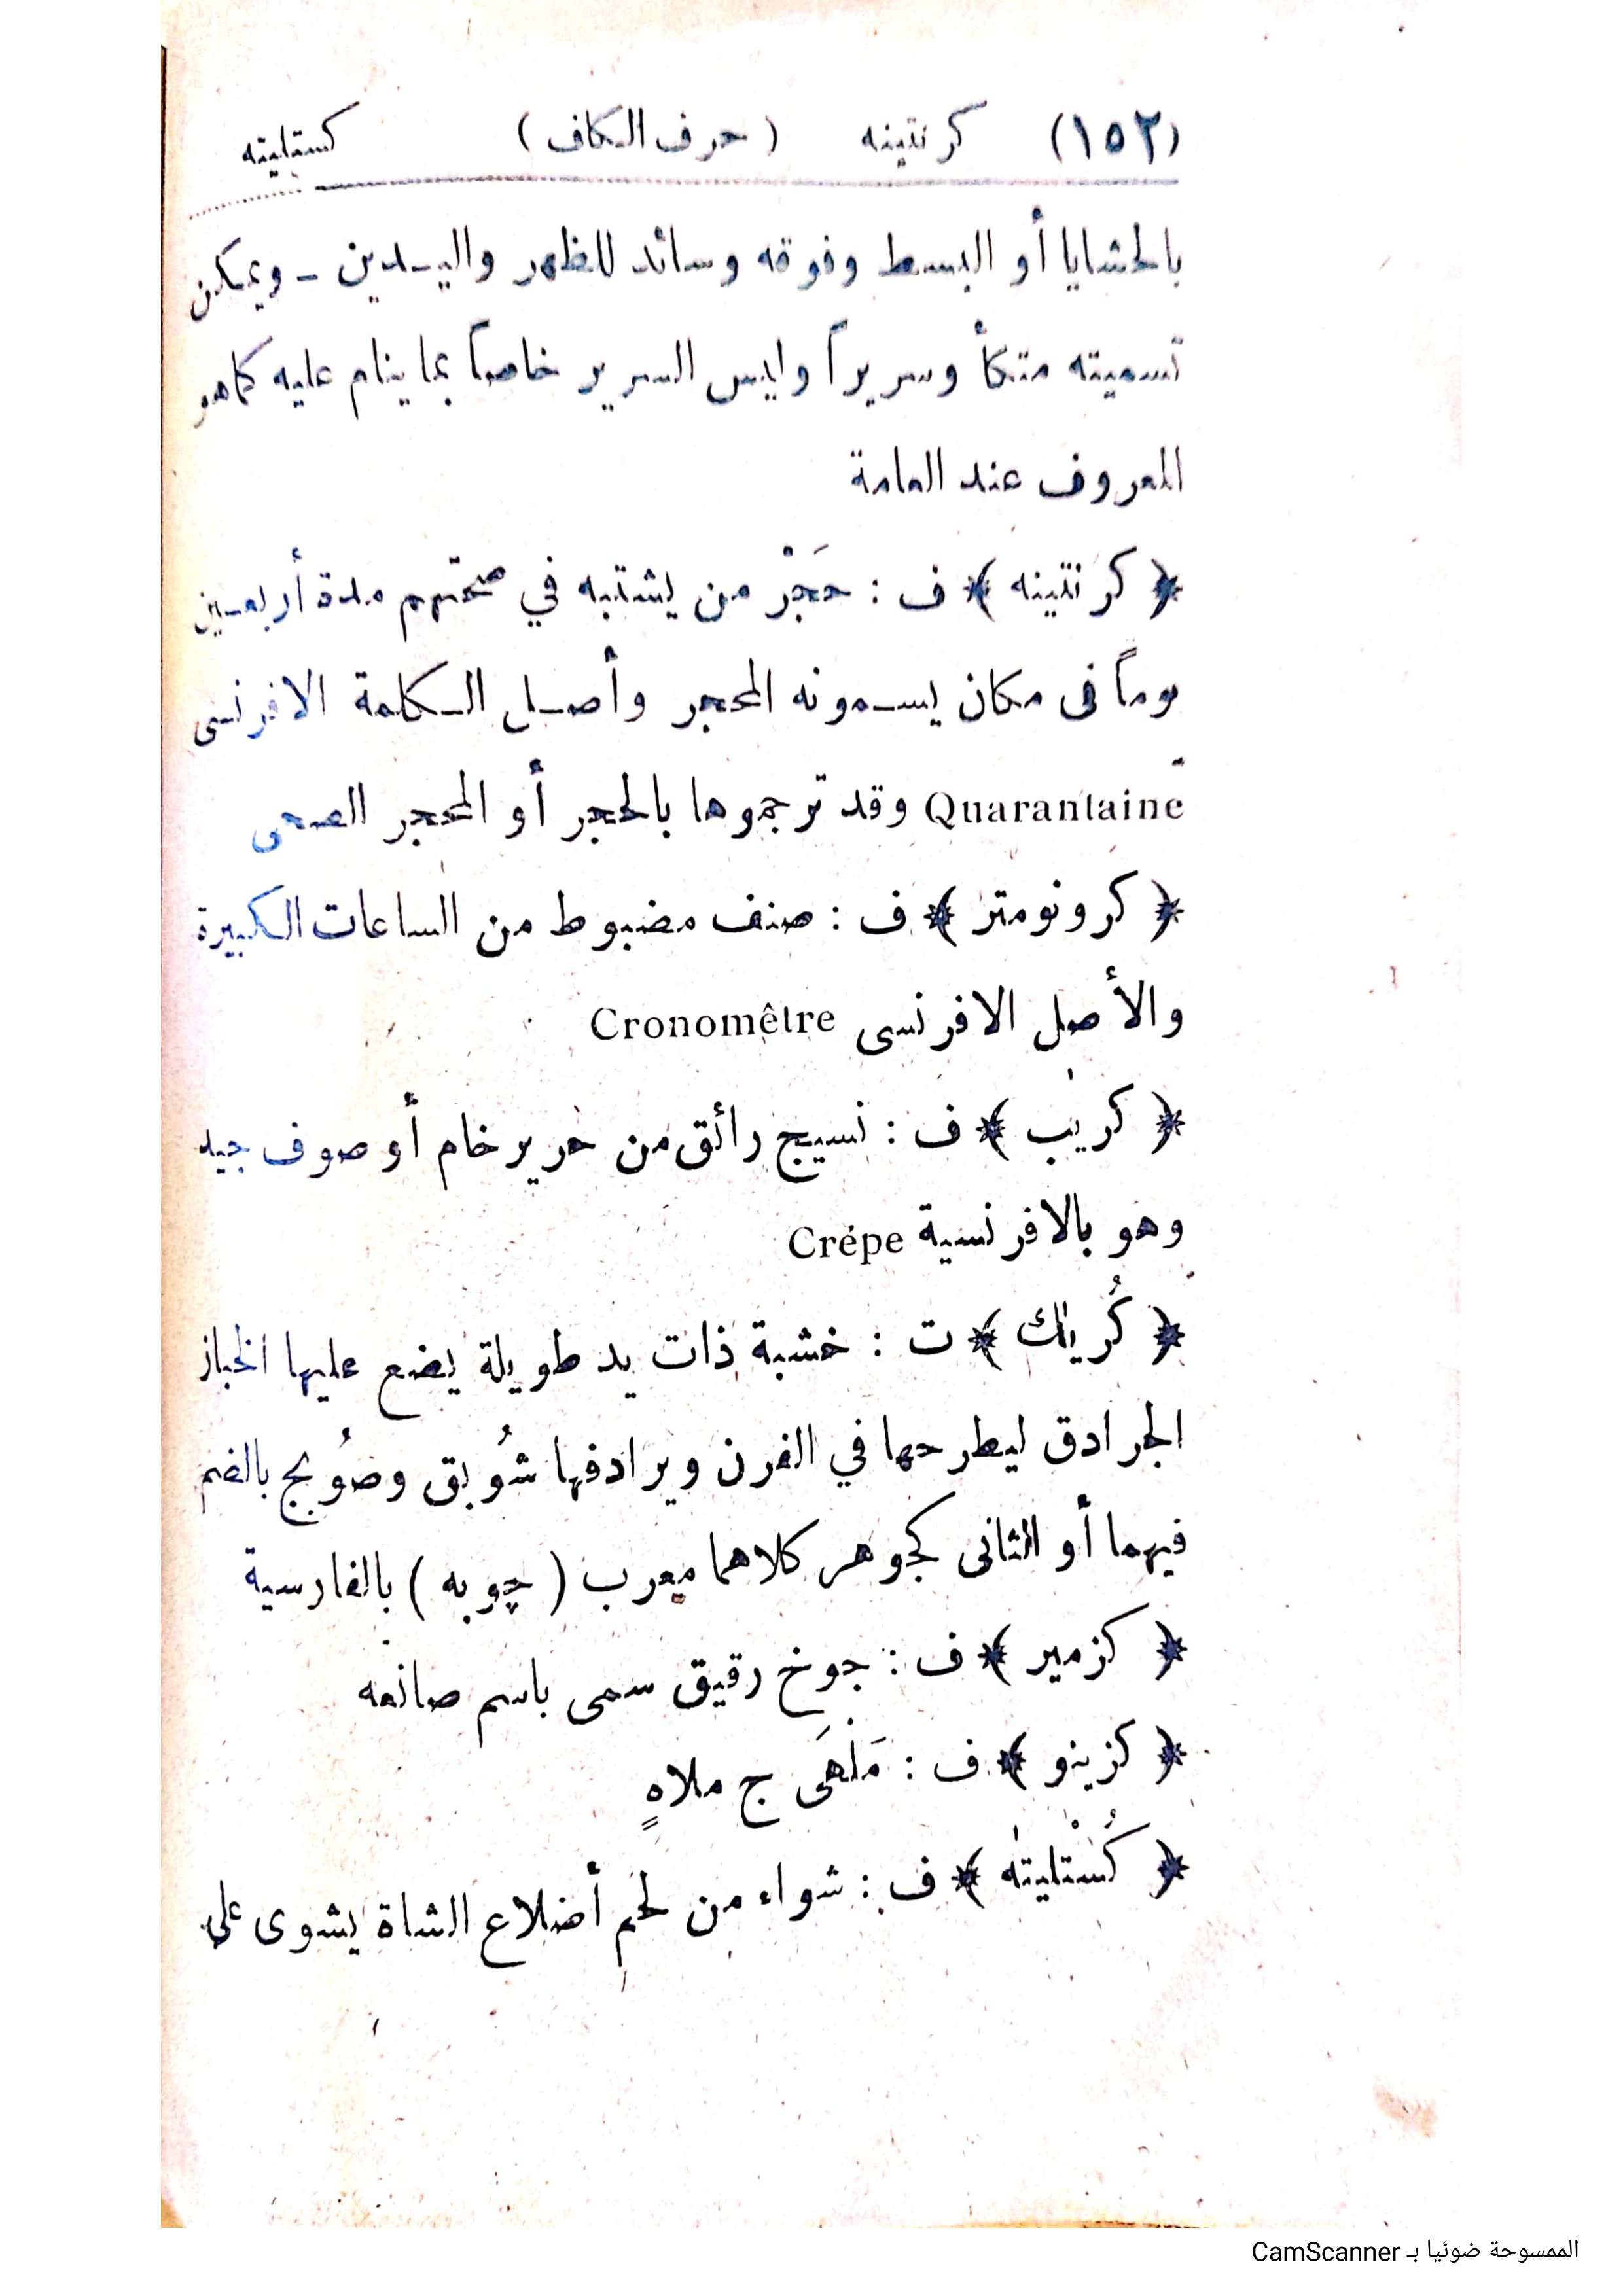 (١٥٢) كرنتينه (حرف الكاف) كستليته
بالحشايا أو البسط وفوقه وسائد للظهر واليدين ـ ويمكن
تسميته متكأ وسريراً وليس السرير خاصاً بما ينام عليه كما هو
المعروف عند العامة
﴿ كرنتينه ﴾ ف : حَجْر من يشتبه في صحتهم مدة أربعين
يوماً فى مكان يسمونه المحجر وأصل الكلمة الافرنسى
Quarantaine وقد ترجموها بالحجر أو المحجر الصحى
﴿ كرونومتر ﴾ ف : صنف مضبوط من الساعات الكبيرة
والأصل الافرنسى Cronomêtre
﴿ كريب ﴾ ف : نسيج رائق من حرير خام أو صوف جيد
وهو بالافرنسية Crépe
﴿ كُريك ﴾ ت : خشبة ذات يد طويلة يضع عليها الخباز
الجرادق ليطرحها في الفرن ويرادفها شُوبق وصُوبج بالضم
فيهما أو الثانى كجوهر كلاهما معرب ( چوبه ) بالفارسية
﴿ كزمير ﴾ ف : جوخ رقيق سمى باسم صانعه
﴿ كزينو ﴾ ف : مَلْهَى ج ملاهٍ
﴿ كُسْتليته ﴾ ف : شواء من لحم أضلاع الشاة يشوى على
الممسوحة ضوئيا بـ CamScanner